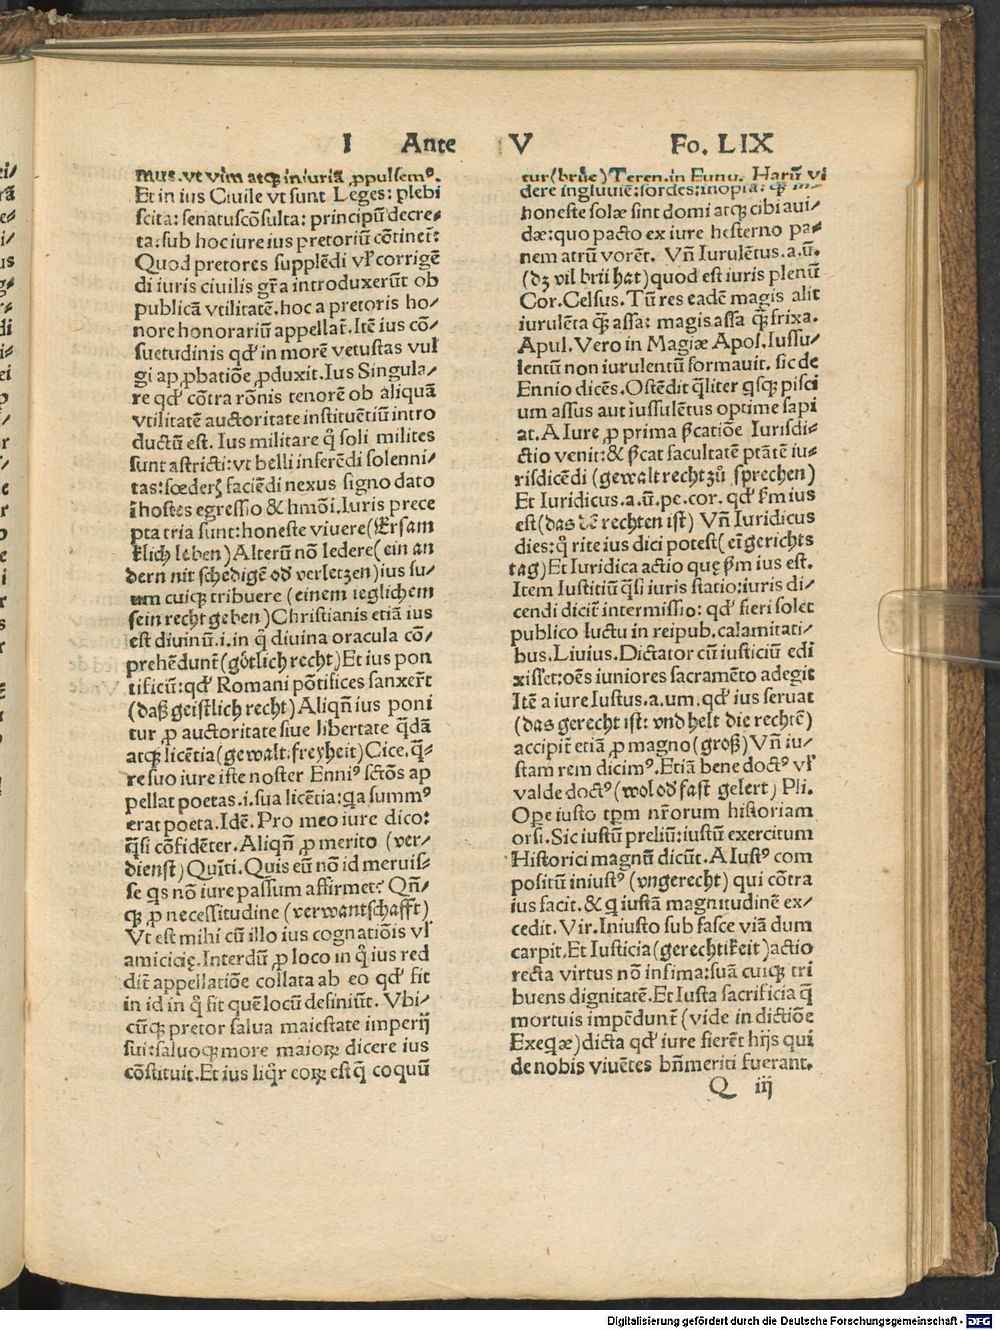 I Ante V Fo. LIX
mus. vt vim atqꝫ iniuriā ꝓpulsemꝰ.
Et in ius Ciuile vt sunt Leges: plebi
scita: senatuscōsulta: principū decre⸗
ta: sub hoc iure ius pretoriū cōtinet̃:
Quod pretores supplēdi vl̃ corrigē
di iuris ciuilis gr̃a introduxerūt ob
publicā vtilitatē. hoc a pretoris ho/
nore honorariū appellat̃. Itē ius cō/
suetudinis qd' in morē vetustas vul
gi apꝓbatiōe ꝓduxit. Ius Singula/
re qd' cōtra rōnis tenorē ob aliquā
vtilitatē auctoritate instituētiū intro
ductū est. Ius militare q̊ soli milites
sunt astricti: vt belli inferēdi solenni/
tas: fœderꝭ faciēdi nexus signo dato
ī hostes egressio & hmōi. Iuris prece
pta tria sunt: honeste viuere (Ersam
klich leben) Alterū nō ledere (ein an
dern nit schedigē oď verletzen) ius su/
um cuiqꝫ tribuere (einem ieglichem
sein recht geben) Christianis etiā ius
est diuinū .i. in q̊ diuina oracula cō/
prehēdunt̃ (götlich recht) Et ius pon
tificiū: qd' Romani pōtifices sanxert̃
(daß geistlich recht) Aliqñ ius poni
tur ꝓ auctoritate siue libertate q̄dā
atqꝫ licētia (gewalt. freyheit) Cice. q̄⸗
re suo iure iste noster Enniꝰ sctōs ap
pellat poetas .i. sua licētia: qa summꝰ
erat poeta. Idē. Pro meo iure dico:
q̄si cōfidēter. Aliqñ ꝓ merito (ver/
dienst) Quīti. Quis eū nō id meruis⸗
se qs nō iure passum affirmet? Qñ/
qꝫ ꝓ necessitudine (verwantschafft)
Vt est mihi cū illo ius cognatiōis vl̃
amicicię. Interdū ꝓ loco in q̊ ius red
dit̃ appellatiōe collata ab eo qd' fit
in id in q̊ fit quē locū definiūt. Vbi/
cūqꝫ pretor salua maiestate imperij
sui: saluoqꝫ more maioꝝ dicere ius
cōstituit. Et ius liqr̃ coꝝ est q̄ coquū
tur (brüe) Teren. in Eunu. Harū vi
dere ingluuiē: sordes: inopia: q̄ in/
honeste solæ sint domi atqꝫ cibi aui/
dæ: quo pacto ex iure hesterno pa⸗
nem atrū vorēt. Vñ Iurulētus .a.ū.
(dz vil brü hat) quod est iuris plenū
Cor. Celsus. Tū res eadē magis alit
iurulēta q̄ assa: magis assa q̄ frixa.
Apul. Vero in Magiæ Apol. Iussu/
lentū non iurulentū formauit. sic de
Ennio dicēs. Ostēdit q̄liter qsqꝫ pisci
um assus aut iussulētus optime sapi
at. A Iure ꝓ prima p̄catiōe Iurisdi⸗
ctio venit: & p̄cat facultatē ptātē iu/
risdicēdi (gewalt recht zů sprechen)
Et Iuridicus .a.ū. pe. cor. qd' s̄m ius
est (das dē rechten ist) Vñ Iuridicus
dies: q̊ rite ius dici potest (eī gerichts
tag) Et Iuridica actio quę s̄m ius est.
Item Iustitiū q̄si iuris statio: iuris di/
cendi dicit̃ intermissio: qd' fieri solet
publico luctu in reipub. calamitati/
bus. Liuius. Dictator cū iusticiū edi
xisset: oēs iuniores sacramēto adegit
Itē a iure Iustus .a.um. qd' ius seruat
(das gerecht ist: vnd helt die rechtē)
accipit̃ etiā ꝓ magno (groß) Vñ iu/
stam rem dicimꝰ. Etiā bene doctꝰ vl̃
valde doctꝰ (wol oď fast gelert) Pli.
Ope iusto tpm nr̃orum historiam
orsi. Sic iustū preliū: iustū exercitum
Historici magnū dicūt. A Iustꝰ com
positū iniustꝰ (vngerecht) qui cōtra
ius facit. & q iustā magnitudinē ex/
cedit. Vir. Iniusto sub fasce viā dum
carpit. Et Iusticia (gerechtikeit) actio
recta virtus nō infima: suā cuiqꝫ tri
buens dignitatē. Et Iusta sacrificia q̄
mortuis impēdunt̃ (vide in dictiōe
Exeqæ) dicta qd' iure fierēt hijs qui
de nobis viuētes bn̄meriti fuerant.
Q iij
Digitalisierung gefördert durch die Deutsche Forschungsgemeinschaft - DFG